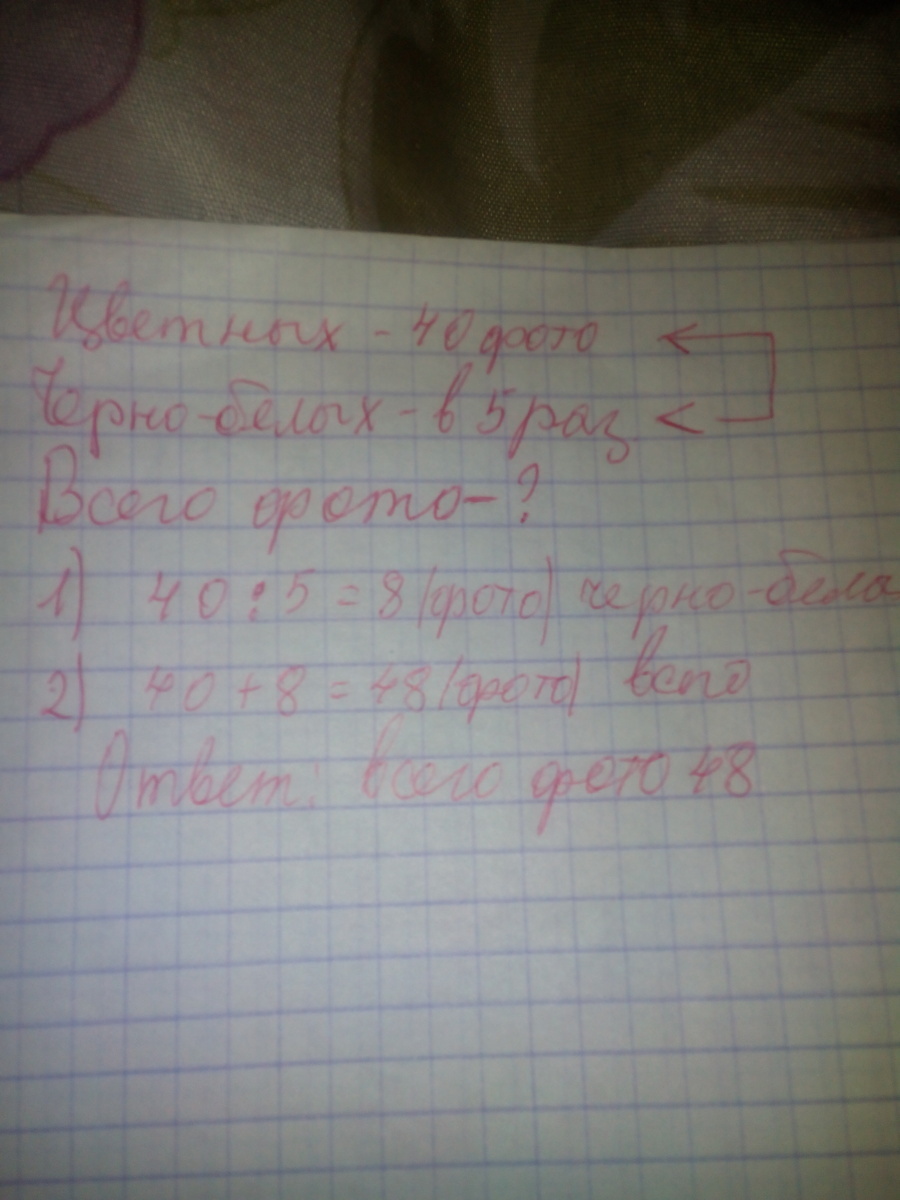 Цветных - 40 фото
Черно-белых - в 5 раз <
Всего фото - ?
1) 40 : 5 = 8 (фото) черно-бела
2) 40 + 8 = 48 (фото) всего
Ответ: всего фото 48